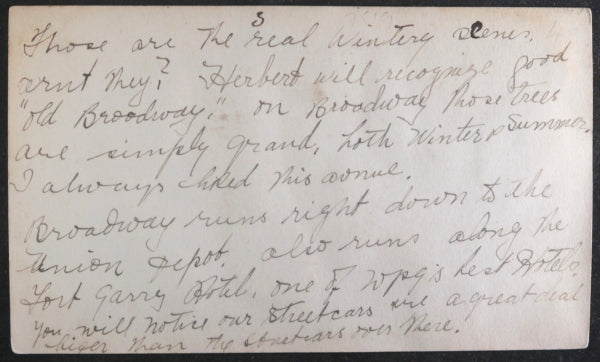 Those are the real Wintery scenes
arnt they? Herbert will recognize good
"old Broodway." on Broadway those trees
are simply grand, both Winter & Summer.
I always liked this avnue.
Broadway runs right down to the
Union Depot also runs along the
Fort Garry Hotel, one of Wpg's best Hotels.
You will notice our Streetcars are a great deal
biger than the streetcars over there.